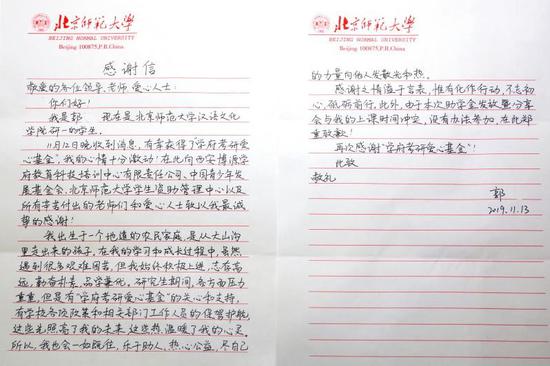 北京师范大学
BEIJING NORMAL UNIVERSITY
Beijing 100875,P.R.China
感谢信
敬爱的各位领导、老师、爱心人士:
你们好!
我是郭 现在是北京师范大学汉语文化
学院研一的学生。
11月12日晚收到消息,有幸获得了"学府考研爱
心基金",我的心情十分激动!在此向西安博源学
府教育科技培训中心有限责任公司、中国青少年发
展基金会、北京师范大学学生资助管理中心以及
所有辛苦付出的老师们和爱心人士致以我最诚
挚的感谢!
我出生于一个地道的农民家庭,是从大山沟
里走出来的孩子,在我的学习和成长过程中,虽然
遇到很多艰难困苦,但我始终积极上进,志存高
远,勤奋朴素,品学兼优。研究生期间,各方面压力
重重,但是有"学府考研爱心基金"的关心和支持,
有学校各项政策和相关部门工作人员的保驾护航,
这些光照亮了我的未来,这些热温暖了我的心灵。
所以,我也会一如既往,乐于助人,热心公益,尽自己
北京师范大学
BEIJING NORMAL UNIVERSITY
Beijing 100875,P.R.China
的力量向他人发散光和热。
感谢之情溢于言表,惟有化作行动,不忘初
心,砥砺前行。此外,由于本次助学金发放暨分享
会与我的上课时间冲突,没有办法参加,在此郑
重致歉!
再次感谢"学府考研爱心基金"!
此致
敬礼
郭
2019.11.13